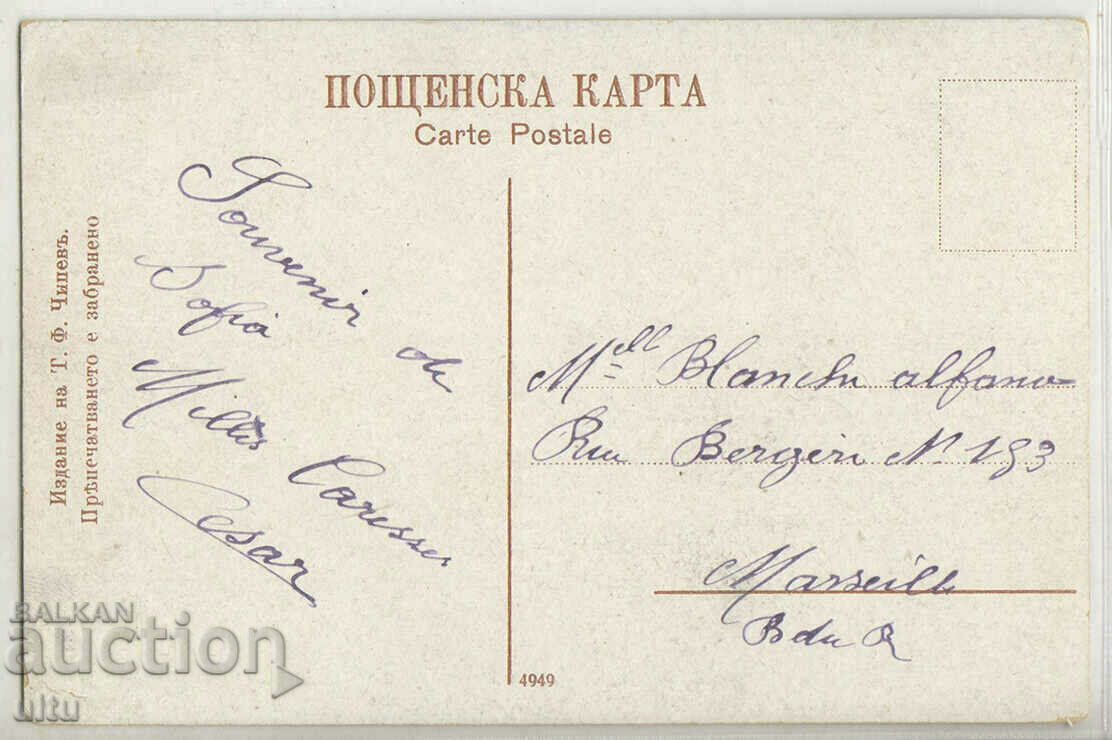 ПОЩЕНСКА КАРТА
Carte Postale
Издание на Т. Ф. Чипевъ.
Прѣпечатването е забранено
Souvenir de
Sofia
Milles Caresses
Cesar
Mell Blanche alfano
Rue Bergere No 193
Marseille
B du R
4949
BALKAN
auction
ultu